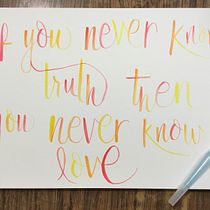 if you never know
truth then
you never know
love